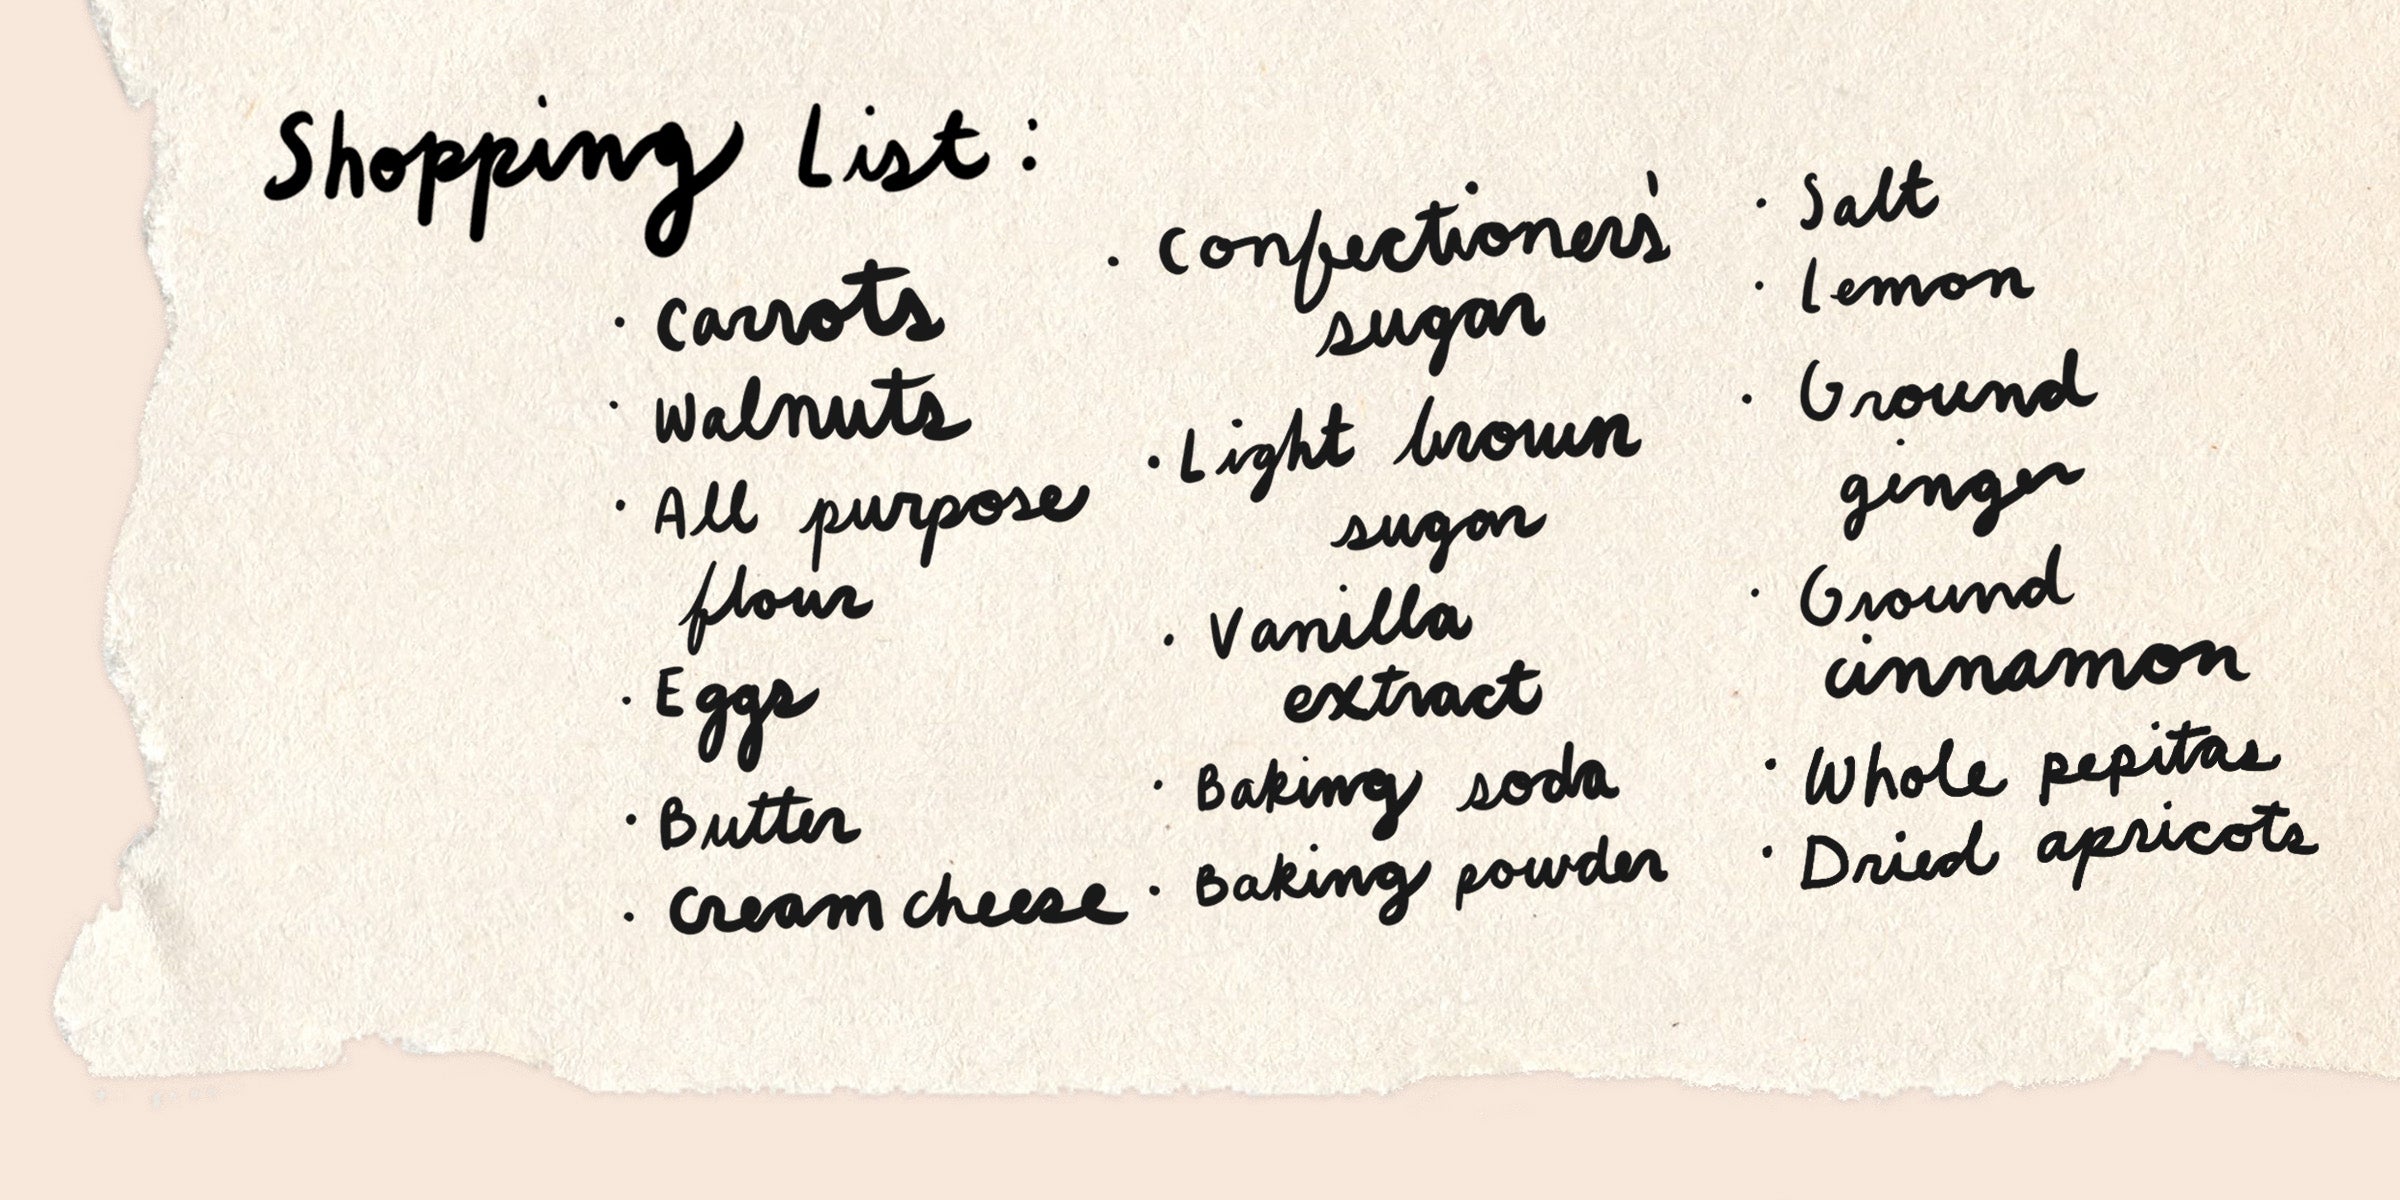 Shopping List:
· Carrots
· Walnuts
· All purpose
flour
· Eggs
· Butter
· Cream cheese
· Confectioners'
sugar
· Light brown
sugar
· Vanilla
extract
· Baking soda
· Baking powder
· Salt
· Lemon
· Ground
ginger
· Ground
cinnamon
· Whole pepitas
· Dried apricots